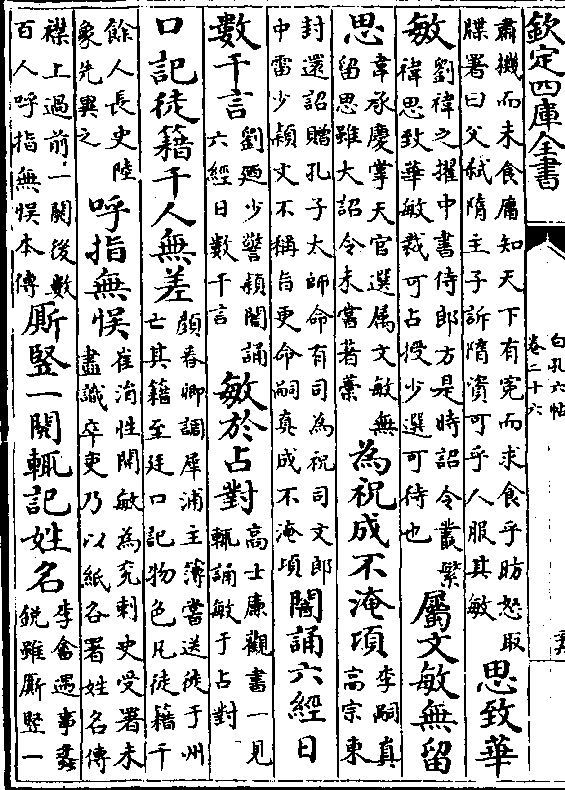 欽定四庫全書
白孔六帖
卷二十六
肅機而未食庸知天下有寃而求食乎昉怒取
牒署曰父弑隋主子訴隋資可乎人服其敏
思致華
敏
劉禕之擢中書侍郎方是時詔令叢繁
禕思致華敏裁可占授少選可待也
屬文敏無留
思
韋承慶掌天官選屬文敏無
留思雖大詔令未嘗著藁
為祝成不淹頃
李嗣真
高宗東
封還詔贈孔子太師命有司為祝司文郎
中雷少頴文不稱旨更命嗣真成不淹頃
闇誦六經日
數千言
劉迺少警頴闇誦
六經日數千言
敏於占對
高士廉觀書一見
輒誦敏于占對
口記徒籍千人無差
顔春卿調犀浦主簿嘗送徒于州
亡其籍至廷口記物色凡徒籍千
餘人長史陸
象先異之
呼指無悮
崔涓性開敏為充刺史受署未
盡識卒吏乃以紙各署姓名傳
襟上過前一閱後數
百人呼指無悮本傳
厮竪一閱輒記姓名
李畬遇事蠭
銳雖厮竪一